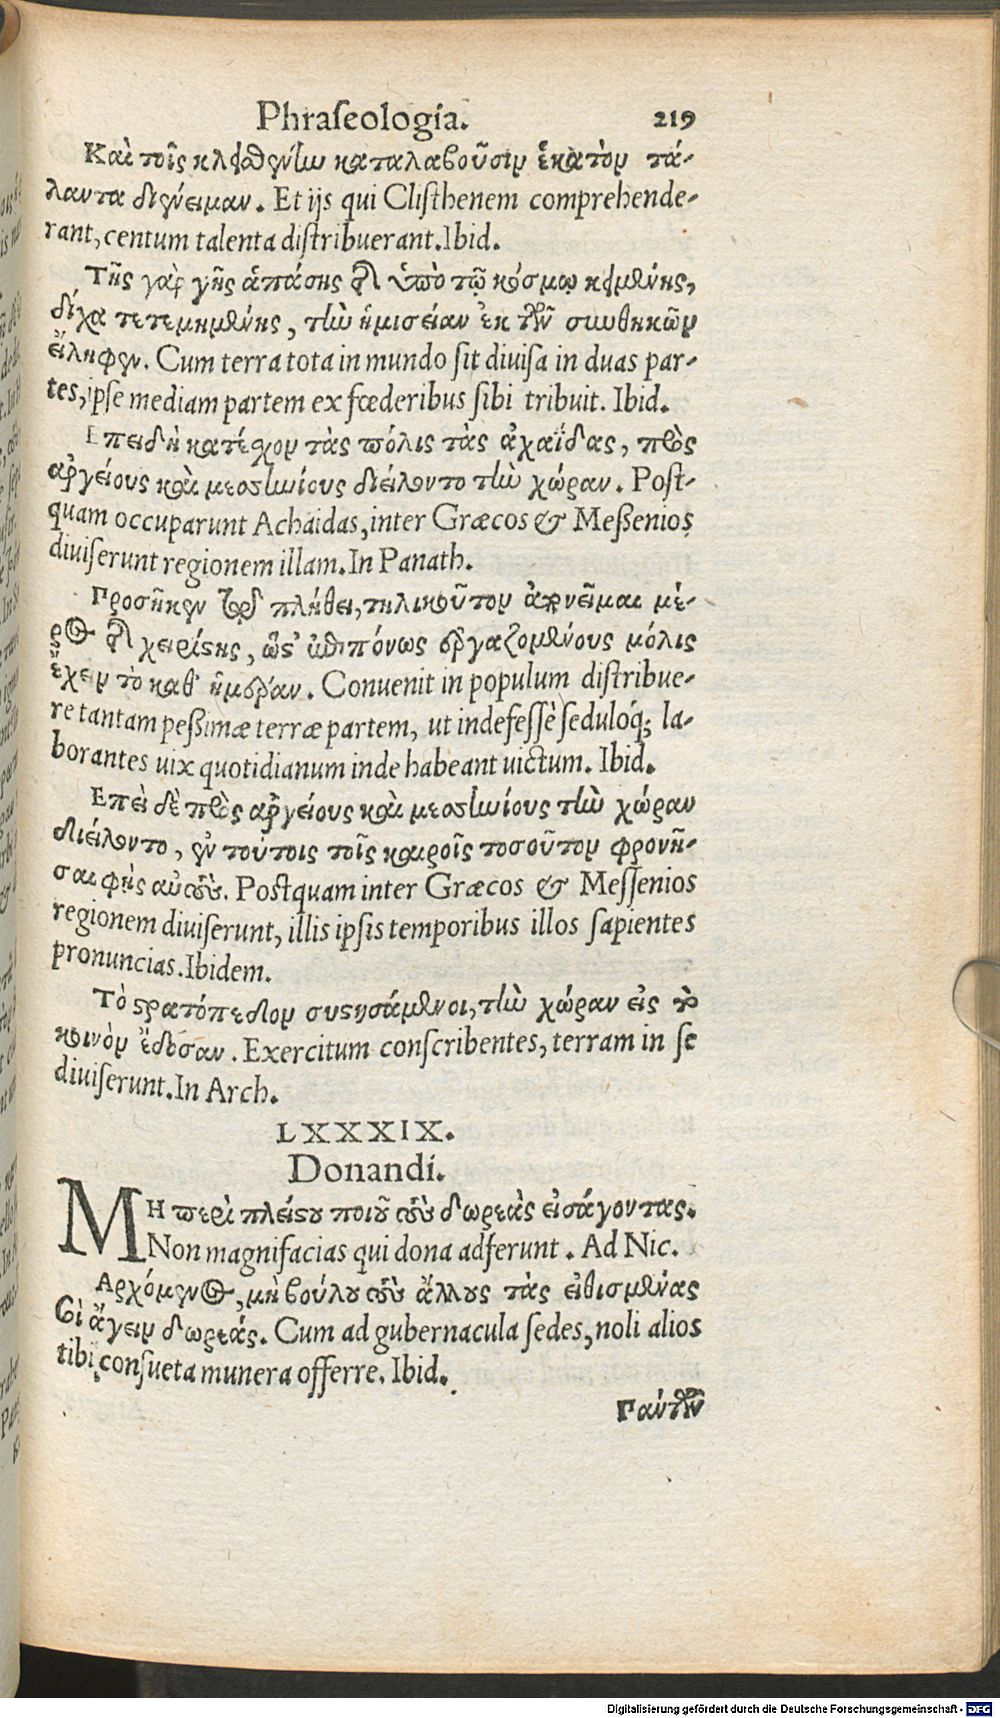 Phraſeologia. 219
Καὶ τοῖς κλεισθένην καταλαβοῦσιν ἑκατὸν τά-
λαντα διένειμαν. Et ijs qui Cliſthenem comprehende-
rant, centum talenta diſtribuerant. Ibid.
Τῆς γὰρ γῆς ἁπάσης τῆς ὑπὸ τῷ κόσμῳ κειμένης,
δίχα τετμημένης, τὴν ἡμισείαν ἐκ τῶν συνθηκῶν
εἴληφεν. Cum terra tota in mundo ſit diuiſa in duas par-
tes, ipſe mediam partem ex fœderibus ſibi tribuit. Ibid.
Επειδὴ κατέσχον τὰς πόλις τὰς ἀχαΐδας, πρὸς
ἀργείους καὶ μεσσηνίους διείλοντο τὴν χώραν. Poſt-
quam occuparunt Achaidas, inter Græcos & Meſſenios
diuiſerunt regionem illam. In Panath.
Προσῆκεν τῷ πλήθει, τηλικοῦτον ἀπονεῖμαι μέ-
ρος τῆς χειρίστης, ὥστ' ἐπιπόνως ἐργαζομένους μόλις
ἔχειν τὸ καθ' ἡμέραν. Conuenit in populum diſtribue-
re tantam peſſimæ terræ partem, ut indefeſſè ſedulóq; la-
borantes uix quotidianum inde habeant uictum. Ibid.
Επεὶ δὲ πρὸς ἀργείους καὶ μεσσηνίους τὴν χώραν
διείλοντο, ἐν τούτοις τοῖς καιροῖς τοσοῦτον φρονῆ-
σαι φῂς αὐτούς. Poſtquam inter Græcos & Meſſenios
regionem diuiſerunt, illis ipſis temporibus illos ſapientes
pronuncias. Ibidem.
Τὸ στρατόπεδον συστησάμενοι, τὴν χώραν εἰς τὸ
κοινὸν ἔδοσαν. Exercitum conſcribentes, terram in ſe
diuiſerunt. In Arch.
LXXXIX.
Donandi.
ΜΗ περὶ πλείστου ποιοῦ τοὺς δωρεὰς εἰσάγοντας.
Non magnifacias qui dona adferunt. Ad Nic.
Αρχόμενος, μὴ βούλου τοὺς ἄλλους τὰς εἰθισμένας
σοὶ ἄγειν δωρεάς. Cum ad gubernacula ſedes, noli alios
tibi conſueta munera offerre. Ibid.
Παύτων